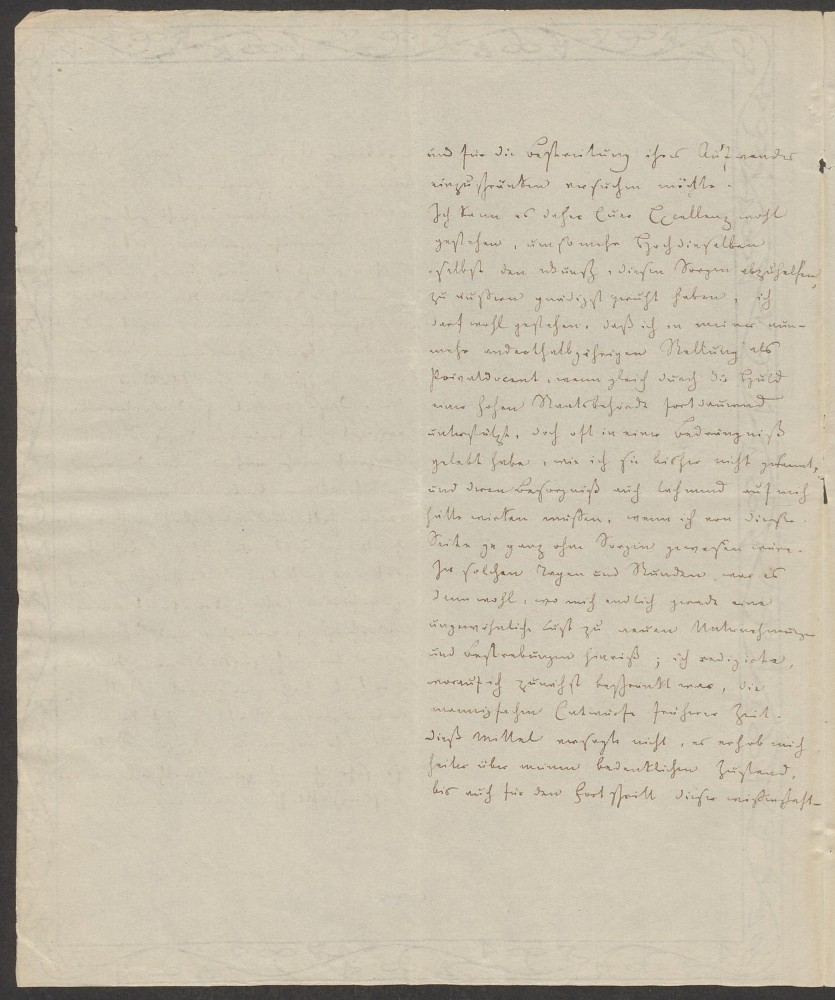 und für die Bestreitung ihres Aufwandes
einzuschränken versuchen möchte.
Ich kann es daher Euer Excellenz wohl
gestehen, umso mehr Hochdieselben
selbst den Wunsch, diesen Sorgen abzuhelfen,
zu äussern gnädigst geruht haben, ich
darf wohl gestehen, daß ich in meiner nun-
mehr anderthalbjährigen Stellung als
Privatdocent, wenn gleich durch die Huld
einer hohen Staatsbehörde fortdauernd
unterstützt, doch oft in einer Bedrängniß
gelebt habe, wie ich sie bisher nicht gekannt,
und deren Besorgniß auch lähmend auf mich
hätte wirken müssen, wenn ich von dieser
Seite je ganz ohne Sorgen gewesen wäre.
In solchen Tagen und Stunden war es
denn wohl, wo mich endlich gerade eine
ungewöhnliche Lust zu neuen Unternehmungen
und Bestrebungen hinriß; ich redigirte,
worauf ich zunächst beschränkt war, die
mannigfachen Entwürfe früherer Zeit.
Dieß Mittel versagte nicht, es erhob mich
heiter über meinen bedenklichen Zustand,
bis auch für den Fortschritt dieser wissenschaft-